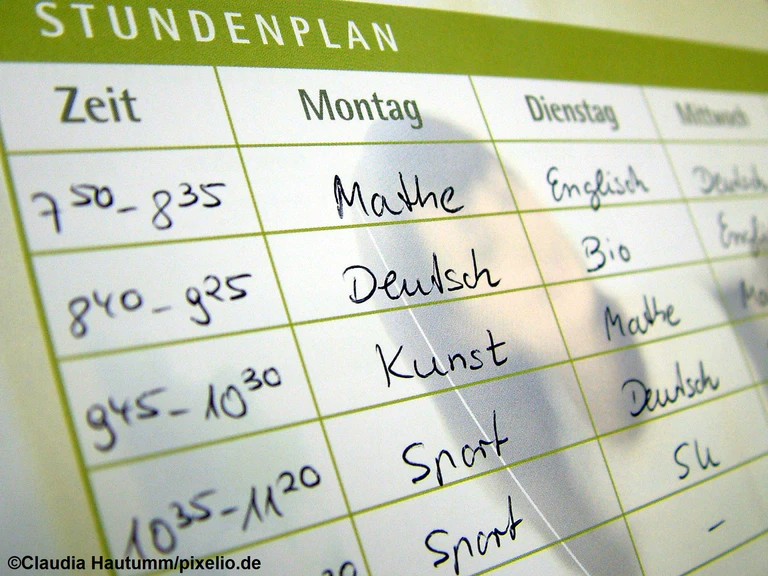 STUNDENPLAN
Zeit Montag Dienstag Mittwoch
7 50 - 8 35 Mathe Englisch Deutsch
8 40 - 9 25 Deutsch Bio
9 45 - 10 30 Kunst Mathe
10 35 - 11 20 Sport Deutsch
Sport SK
-
©Claudia Hautumm/pixelio.de